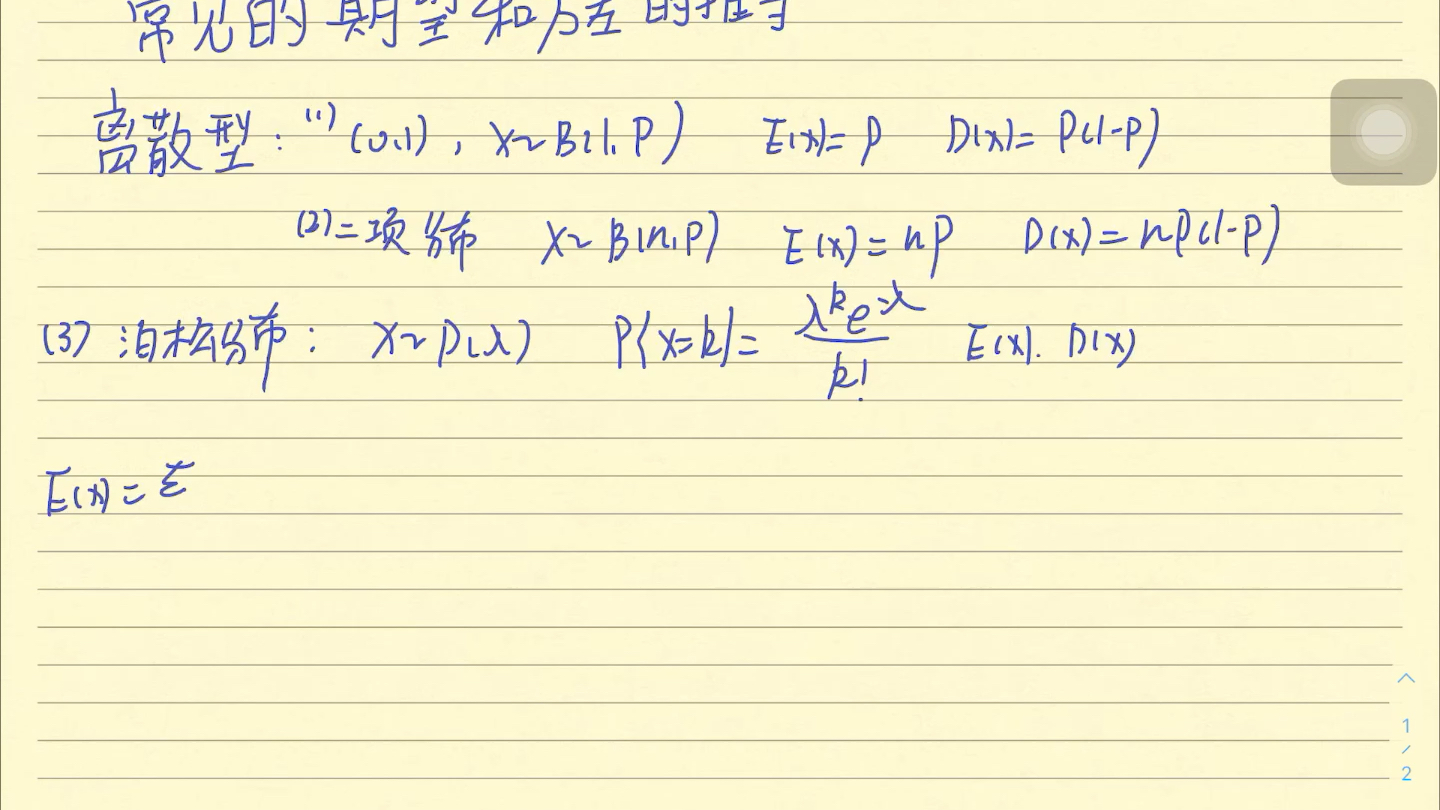 常见的期望和方差的推导
离散型：(1) (0,1)，X~B(1,P) E(X)=P D(X)=P(1-P)
(2)二项分布 X~B(n,P) E(X)=nP D(X)=nP(1-P)
(3) 泊松分布： X~P(λ) P{X=k}=λ^k e^-λ/k! E(X). D(X)
E(X)=Σ
1
/
2